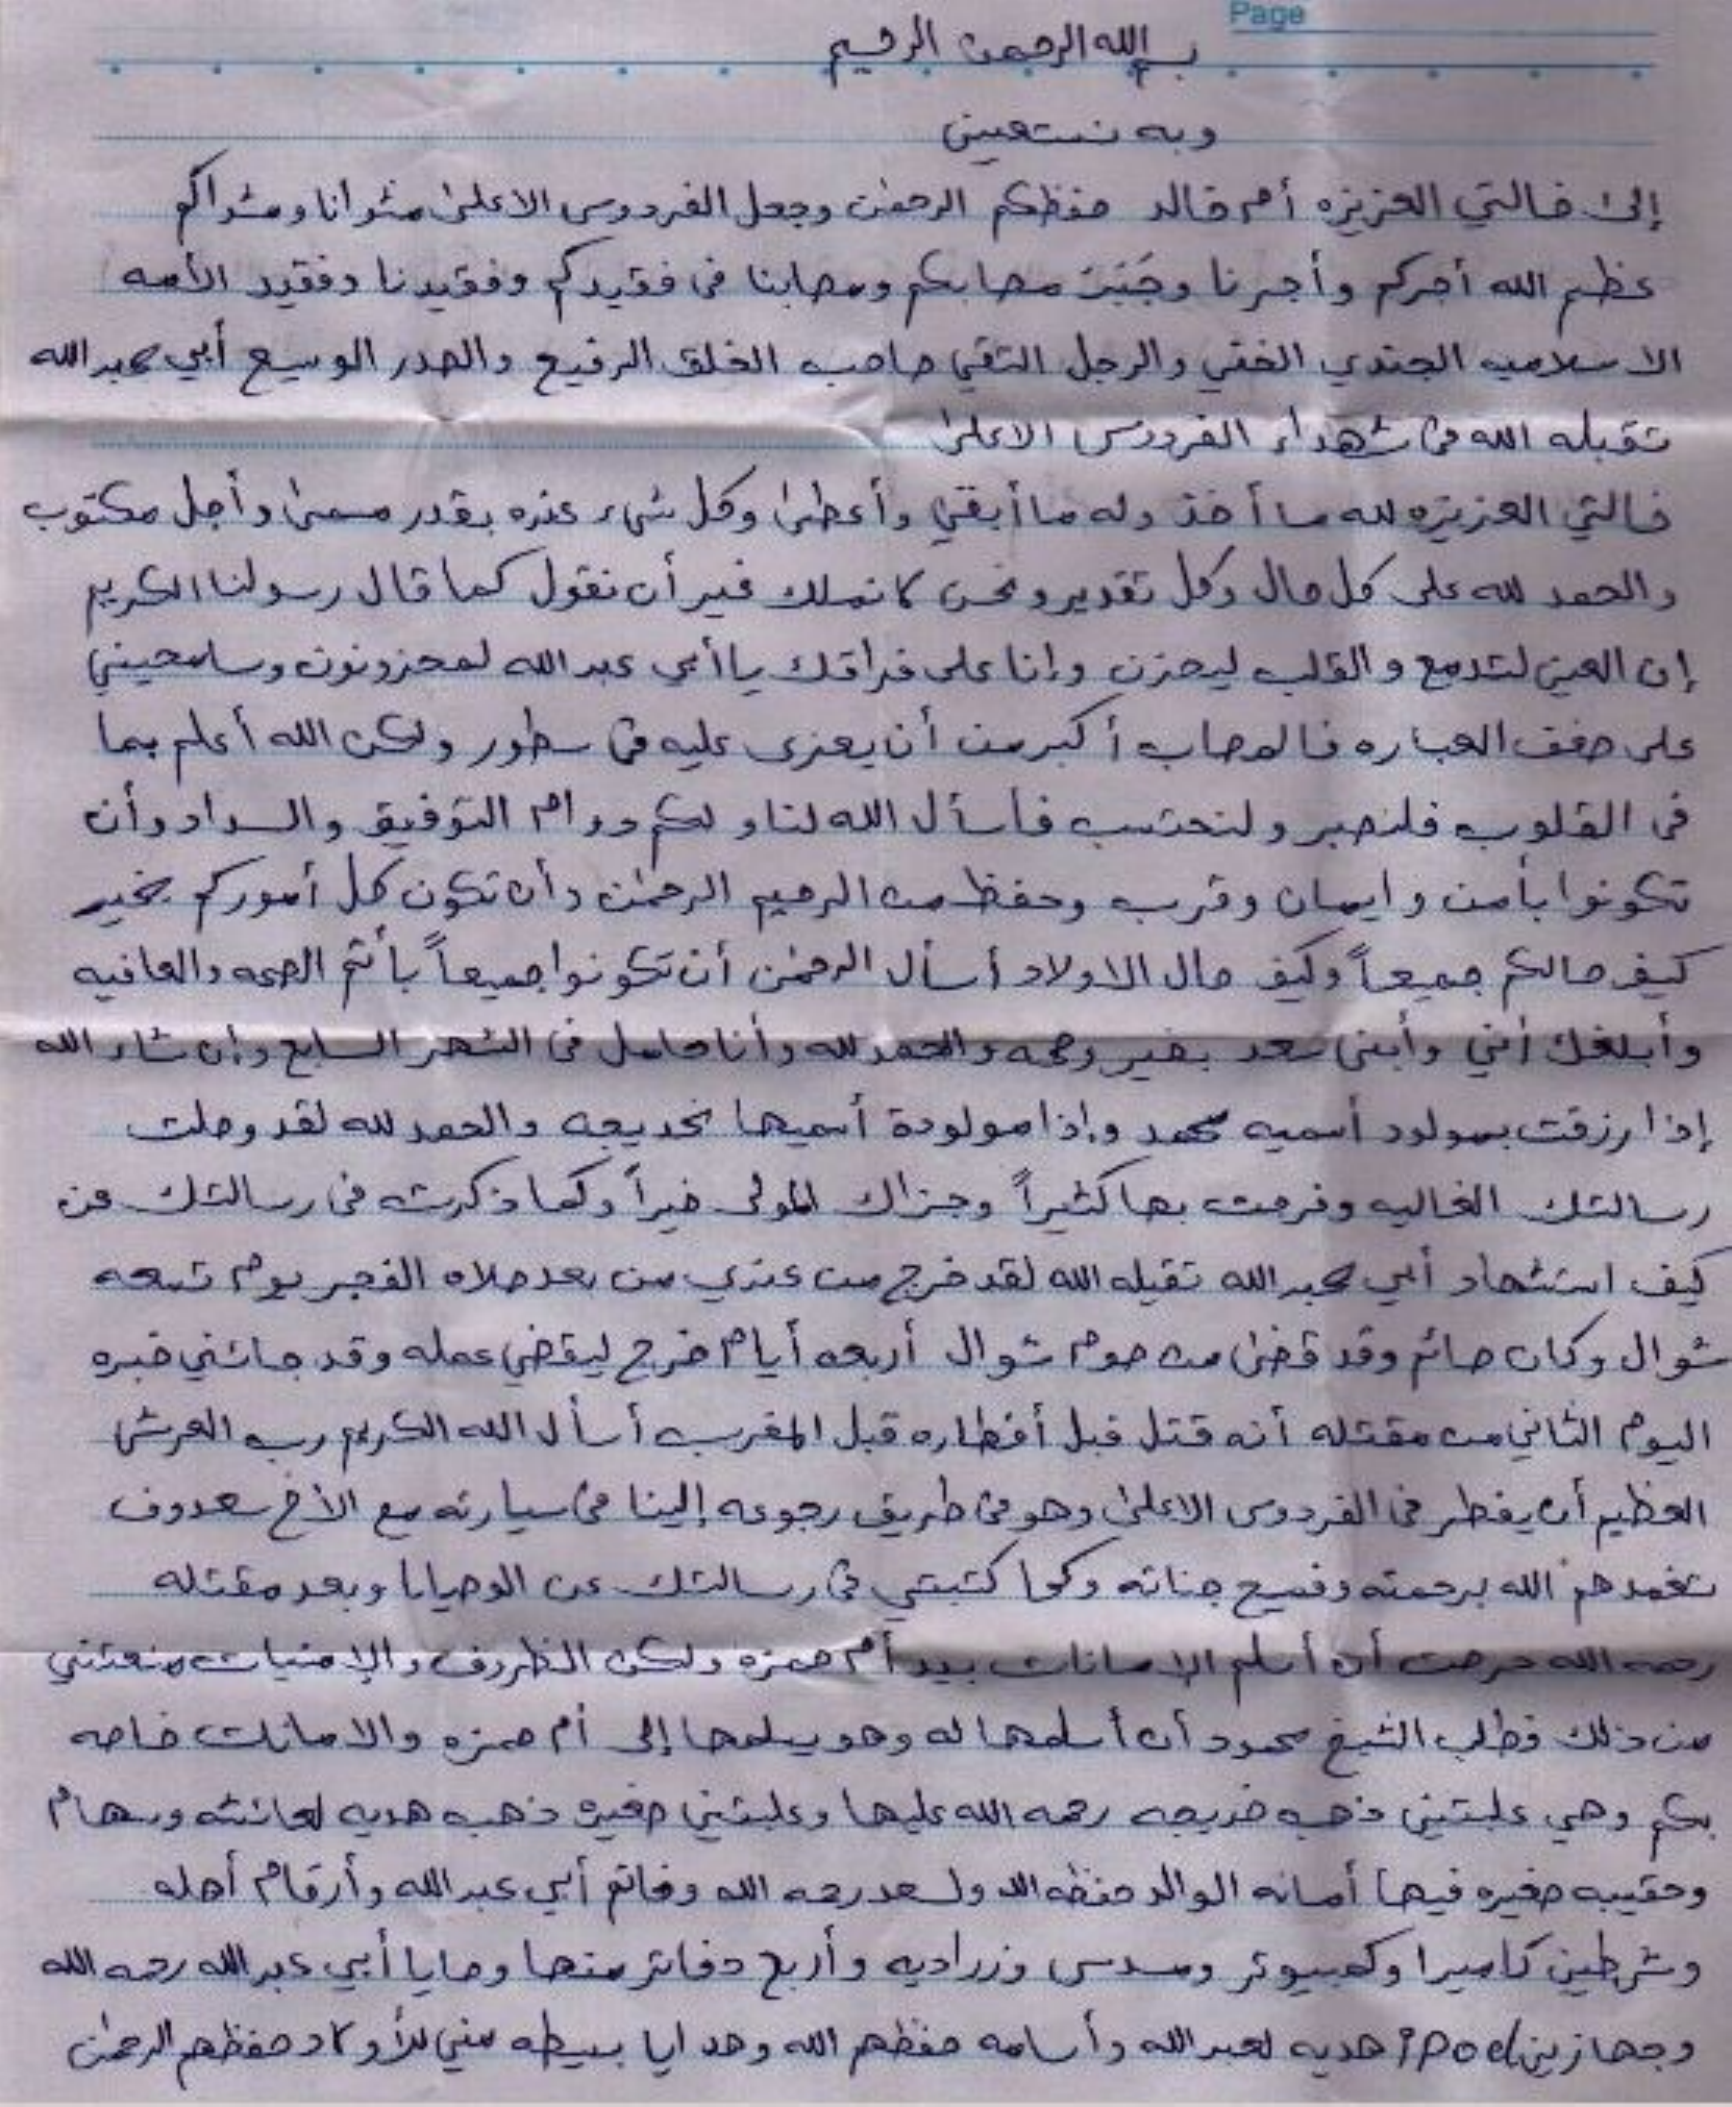 Page
بسم الله الرحمن الرحيم
وبه نستعين
إلى خالتي العزيزه أم خالد حفظكم الرحمن وجعل الفردوس الاعلى مثوانا ومثواكم
عظم الله أجركم وأجرنا مصابكم ومصابنا في فقيدكم وفقيدنا وفقيد الأمه
الاسلاميه الجندي الخفي والرجل التقي صاحب الخلق الرفيع والصدر الوسيع أبي عبدالله
تقبله الله في شهداء الفردوس الاعلى
خالتي العزيزه لله ما أخذ وله ما أبقي وأعطى وكل شيء عنده بقدر مسمى وأجل مكتوب
والحمد لله على كل حال وكل تقدير ونحن لا نملك غير أن نقول كما قال رسولنا الكريم
إن العين لتدمع والقلب ليحزن وإنا على فراقك يا أبي عبد الله لمحزونون وسامحيني
على ضعف العباره فالمصاب أكبر من أن يعزى عليه في سطور ولكن الله أعلم بما
في القلوب فلنصبر ولنحتسب فأسأل الله لنا ولكم دوام التوفيق والسداد وأن
تكونوا بأمن وايمان وقرب وحفظ من الرحيم الرحمن وأن تكون كل أموركم بخير
كيف حالكم جميعاً وكيف حال الاولاد أسأل الرحمن أن تكونوا جميعاً بأتم الصحه والعافيه
وأبلغك أني وأبني سعد بخير وصحه والحمد لله وأنا حامل في الشهر السابع وإن شاء الله
إذا رزقت بمولود أسميه محمد وإذا مولودة أسميها خديجه والحمد لله لقد وصلت
رسالتك الغاليه وفرحت بها كثيراً وجزاك المولى خيراً وكما ذكرت في رسالتك عن
كيف استشهاد أبي عبد الله تقبله الله لقد خرج من عندي من بعد صلاه الفجر يوم تسعه
شوال وكان صائم وقد قضى من صوم شوال أربعه أيام خرج ليقضي عمله وقد جائني خبره
اليوم الثاني من مقتله أنه قتل قبل أفطاره قبل المغرب أسأل الله الكريم رب العرش
العظيم أن يفطر في الفردوس الاعلى وهو في طريق رجوعه إلينا في سيارته مع الأخ سعدوف
تغمدهم الله برحمته وفسيح جناته وكما كتبتي في رسالتك عن الوصايا وبعد مقتله
رحمه الله حرصت أن أسلم الامانات بيد أم حمزه ولكن الظروف والإمنيات منعتني
من ذلك فطلب الشيخ محمود أن أسلمها له وهو يسلمها إلى أم حمزه والامانات خاصه
بكم وهي علبتين ذهب خديجه رحمه الله عليها وعلبتين صغيره ذهب هديه لعائشه وسهام
وحقيبه صغيره فيها أمانه الوالد حفظه الله ولسعد رحمه الله وخاتم أبي عبد الله وأرقام أهله
وشرطين كاميرا وكمبيوتر ومسدس وزراديه وأربع دفاتر منها وصايا أبي عبد الله رحمه الله
وجهازين iPod هديه لعبد الله وأسامه حفظهم الله وهدايا بسيطه مني للأولاد حفظهم الرحمن